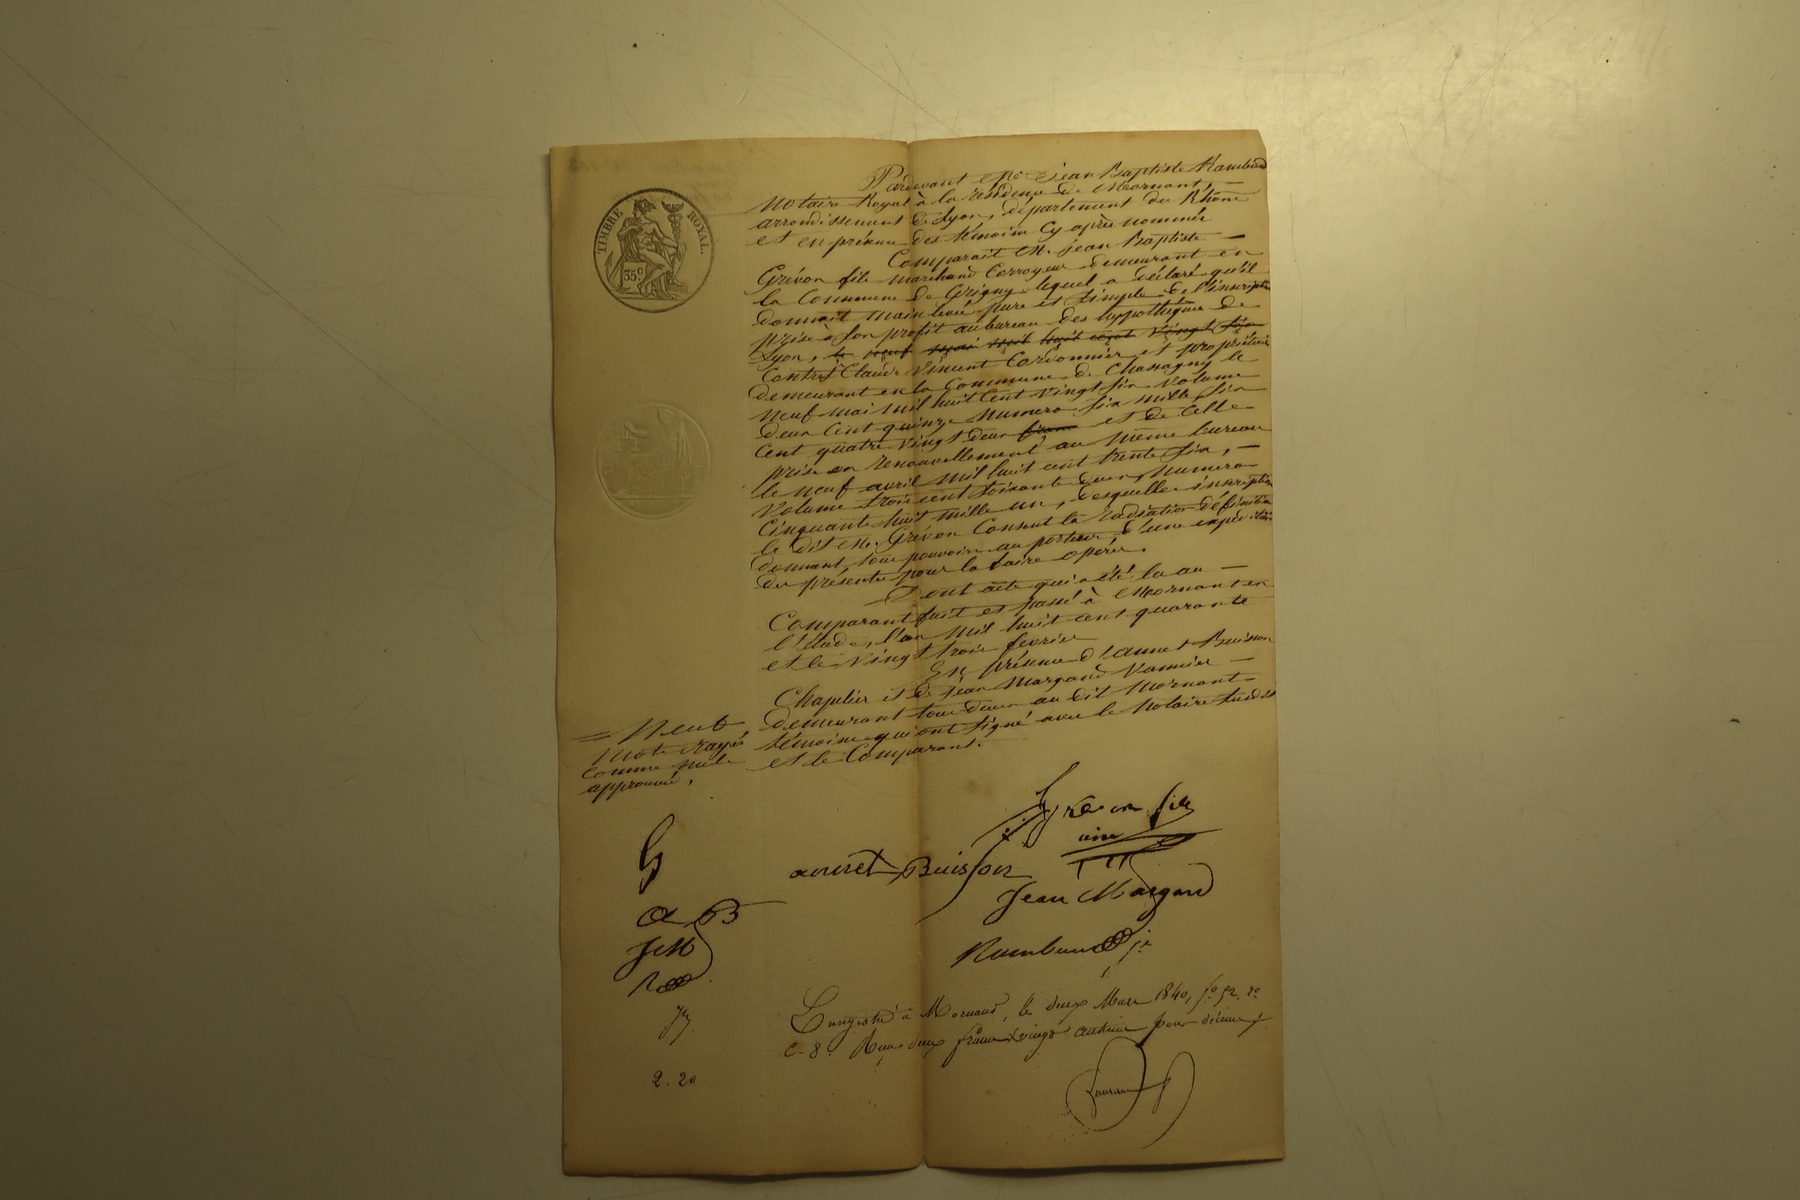 TIMBRE ROYAL
35c
Pardevant Me Jean Baptiste Rambaud
Notaire Royal à la résidence de Mornant,
arrondissement de Lyon, département du Rhône
et en présence des témoins cy après nommés
Comparait M. Jean Baptiste
Grévon fils marchand Corroyeur demeurant en
la Commune de Grigny lequel a déclaré qu'il
donnait main levée pure et simple de l'inscription
prise à son profit au bureau des hypothèques de
Lyon, le neuf mai mil huit cent vingt six
Contre Claude Vincent Cordonnier et propriétaire
demeurant en la Commune de Chassagny le
neuf mai mil huit cent vingt six volume
deux cent quinze numéro six mille six
cent quatre vingt deux et de celle
prise en renouvellement au même bureau
le neuf avril mil huit cent trente six,
volume trois cent soixante deux, numéro
cinquante huit mille un, desquelles inscriptions
le dit M. Grévon Consent la radiation définitive
donnant tous pouvoirs au porteur d'une expédition
des présentes pour la faire opérer.
Dont acte qui a été lu au
Comparant fait et passé à Mornant en
l'étude, l'an mil huit cent quarante
et le vingt trois fevrier
En présence d'annet Buisson
Chapelier et de Jean Margand Vannier
demeurant tous deux au dit Mornant
témoins qui ont signé avec le Notaire susdit
et le Comparant.
= Neuf
mots rayés
comme nuls
approuvé,
Grévon fils
ainé
annet Buisson
Jean Margand
Rambaud
G
a B
JM
R
2. 20
Enregistré à Mornand, le deux Mars 1840, fo 52, ro
c. 8. Reçu deux francs vingt centimes pour décime